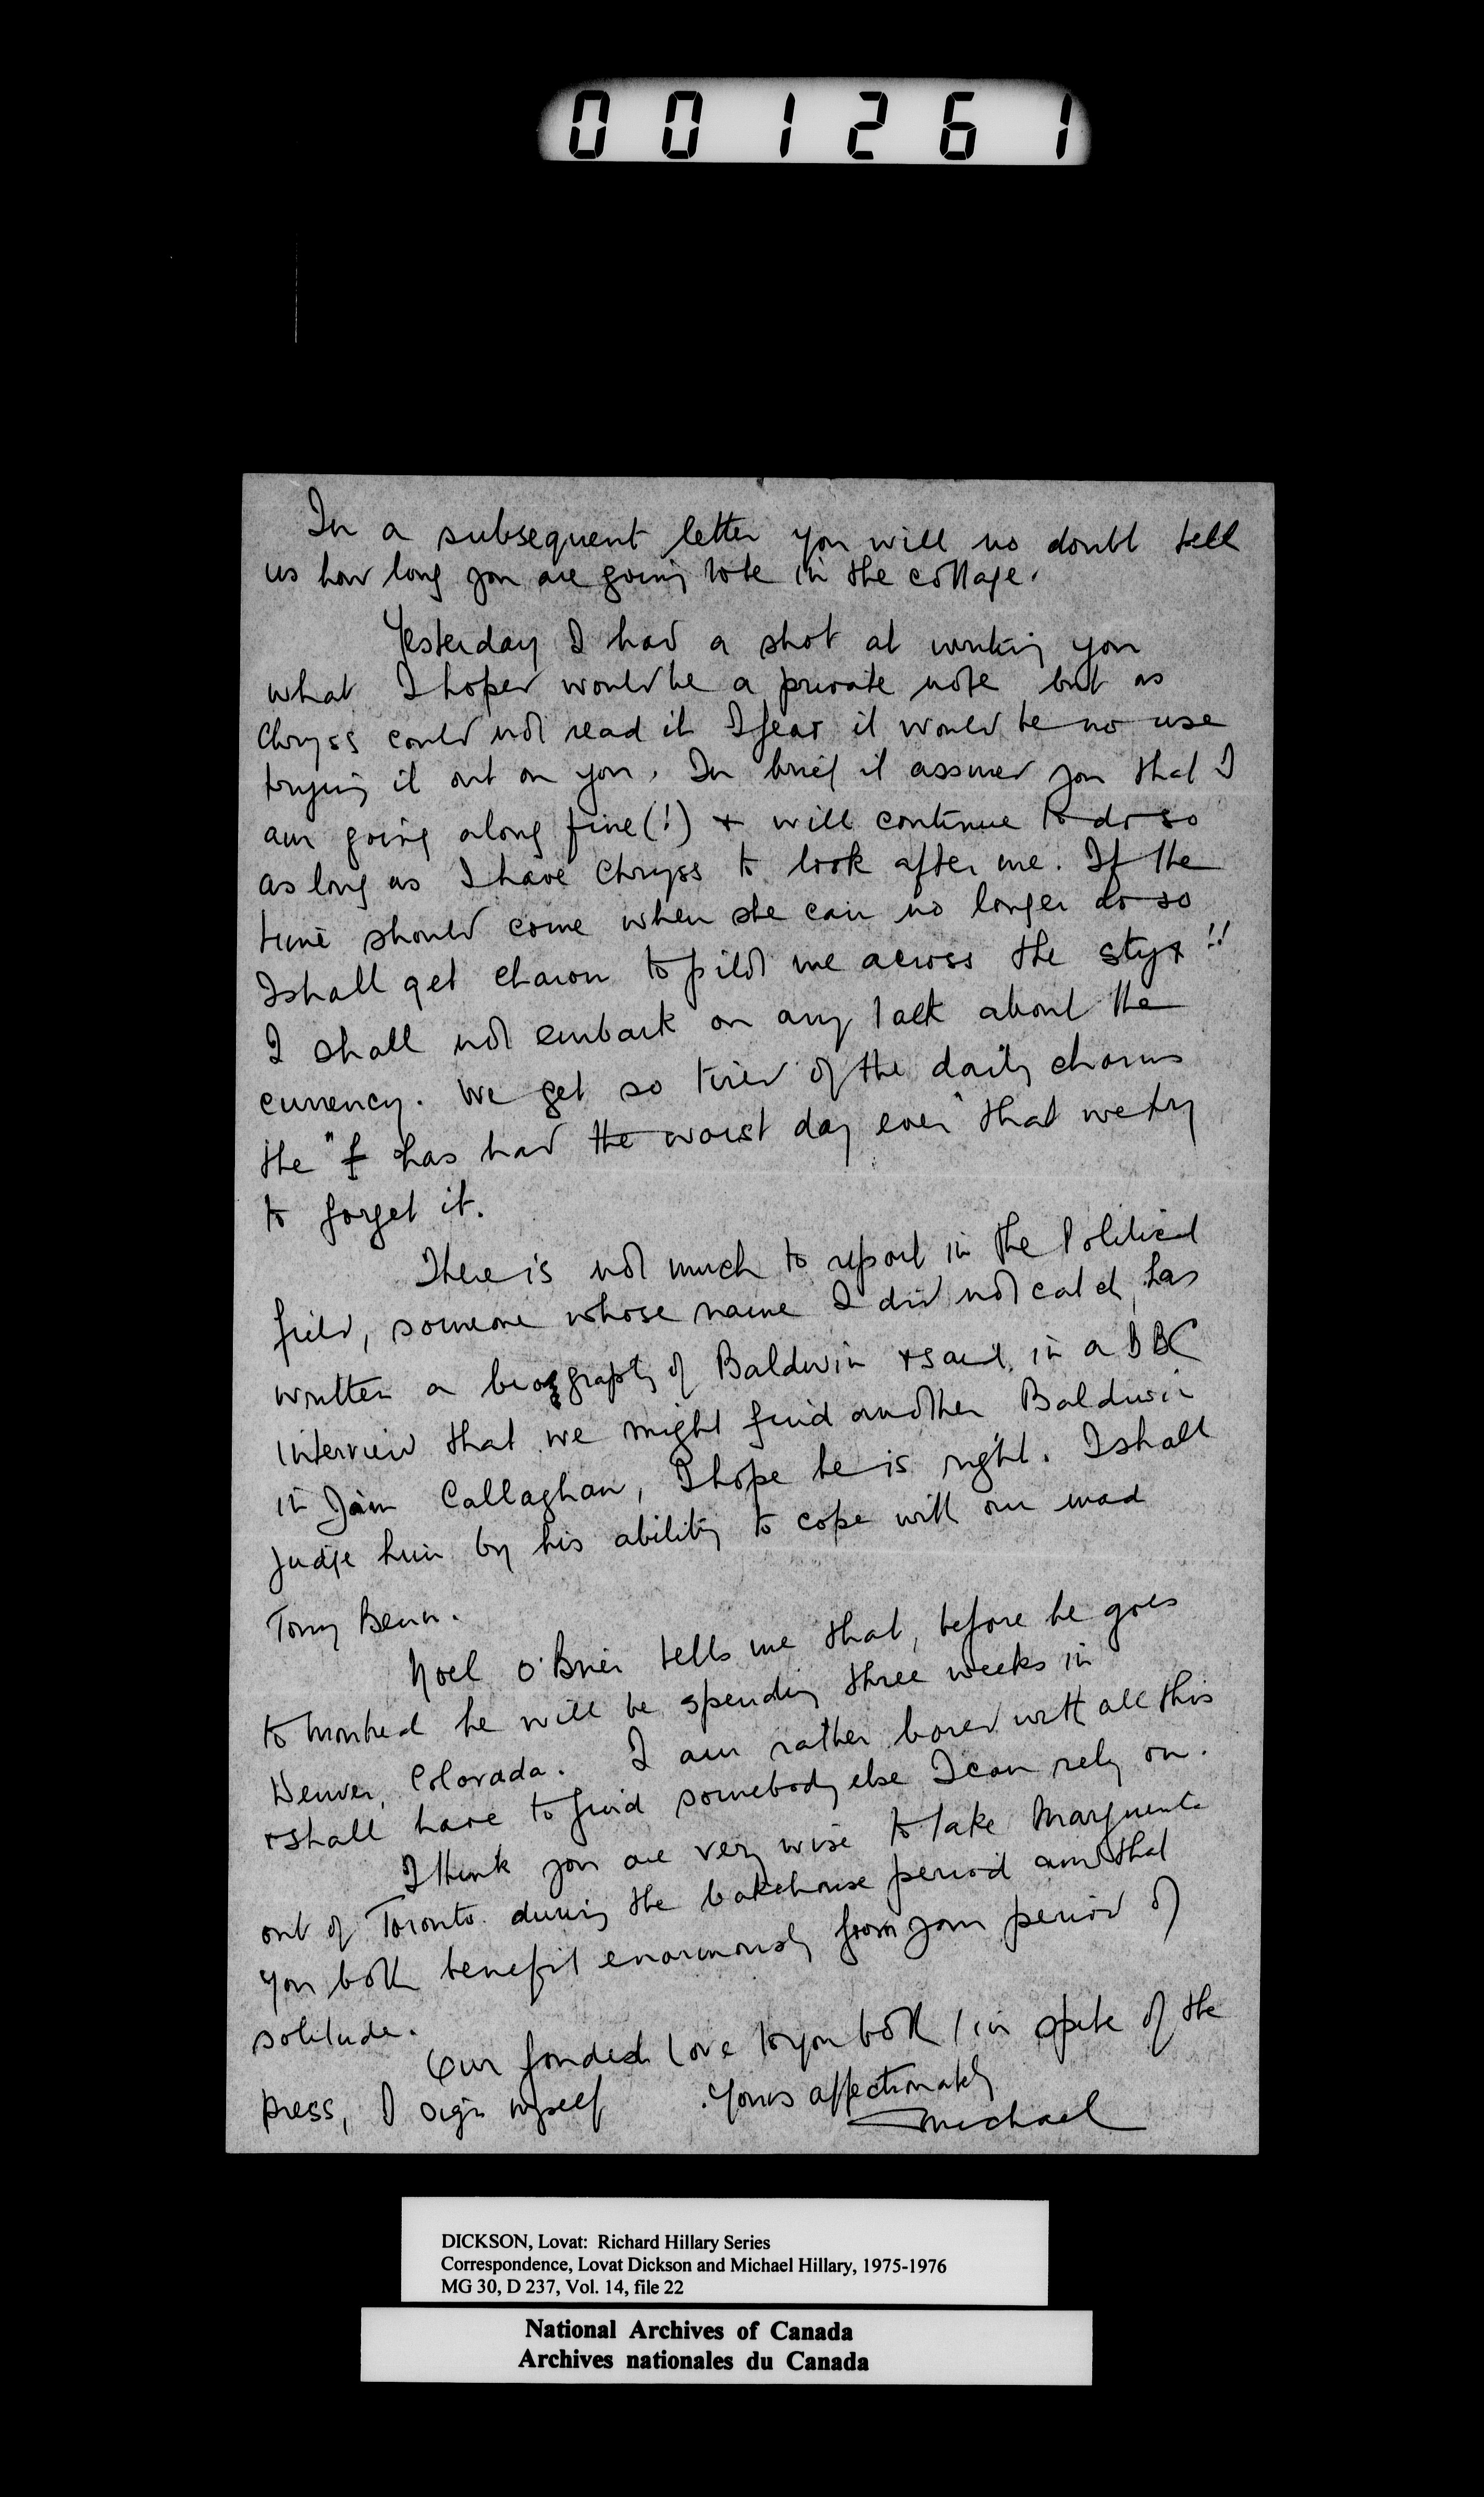 001261
In a subsequent letter you will no doubt tell
us how long you are going to be in the cottage.
Yesterday I had a shot at writing you
what I hoped would be a private note but as
Chryss could not read it I fear it would be no use
trying it out on you. In brief it assured you that I
am going along fine (!) + will continue to do so
as long as I have Chryss to look after me. If the
time should come when she can no longer do so
I shall get Charon to pilot me across the Styx !!
I shall not embark on any talk about the
currency. We get so tired of the daily chorus
the "£ has had the worst day ever" that we try
to forget it.
There is not much to report in the Political
field, someone whose name I did not catch, has
written a biography of Baldwin + said, in a BBC
interview that we might find another Baldwin
in Jim Callaghan, I hope he is right. I shall
judge him by his ability to cope with our mad
Tony Benn.
Noel O'Brien tells me that, before he goes
to Montreal he will be spending three weeks in
Denver, Colorada. I am rather bored with all this
+ shall have to find somebody else I can rely on.
I think you are very wise to take Marguerite
out of Toronto during the bakehouse period and that
you both benefit enormously from your period of
solitude.
Our fondest love to you both / in spite of the
press, I sign myself Yours affectionately
Michael
DICKSON, Lovat: Richard Hillary Series
Correspondence, Lovat Dickson and Michael Hillary, 1975-1976
MG 30, D 237, Vol. 14, file 22
National Archives of Canada
Archives nationales du Canada